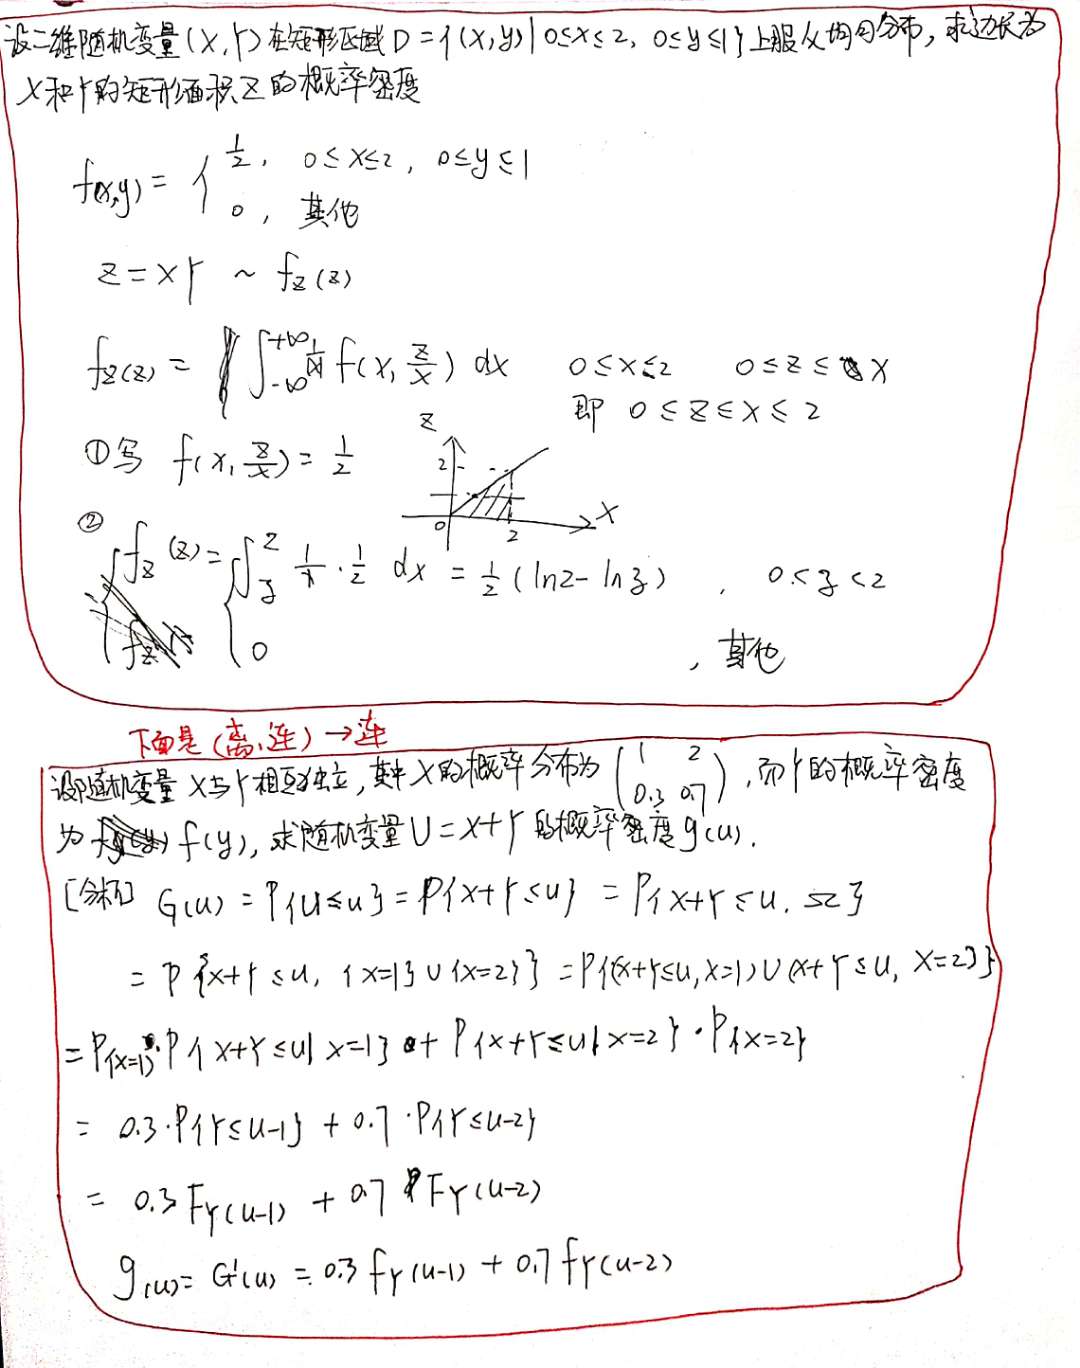 设二维随机变量(X,Y)在矩形区域D={(x,y)|0≤x≤2, 0≤y≤1}上服从均匀分布,求边长为
X和Y的矩形面积Z的概率密度
f(x,y)= { 1/2, 0≤x≤2, 0≤y≤1
0, 其他
Z=XY ~ f_Z(z)
f_Z(z) = ∫_{-∞}^{+∞} 1/|x| f(x, z/x) dx 0≤x≤2 0≤z≤x
即 0≤z≤x≤2
①写 f(x, z/x) = 1/2
z
2
0
2
x
②
f_Z(z) = { ∫_z^2 1/x · 1/2 dx = 1/2 (ln2 - ln z) , 0<z<2
0 , 其他
下面是(离,连)→连
设随机变量X与Y相互独立,其中X的概率分布为 (1 2
0.3 0.7),而Y的概率密度
为 f(y),求随机变量U=X+Y的概率密度g(u).
[分析] G(u) = P{U≤u} = P{X+Y≤u} = P{X+Y≤u, Ω}
= P{X+Y≤u, {X=1}∪{X=2}} = P{(X+Y≤u, X=1)∪(X+Y≤u, X=2)}
= P{X=1}·P{X+Y≤u|X=1} + P{X+Y≤u|X=2}·P{X=2}
= 0.3·P{Y≤u-1} + 0.7·P{Y≤u-2}
= 0.3 F_Y(u-1) + 0.7 F_Y(u-2)
g(u) = G'(u) = 0.3 f_Y(u-1) + 0.7 f_Y(u-2)